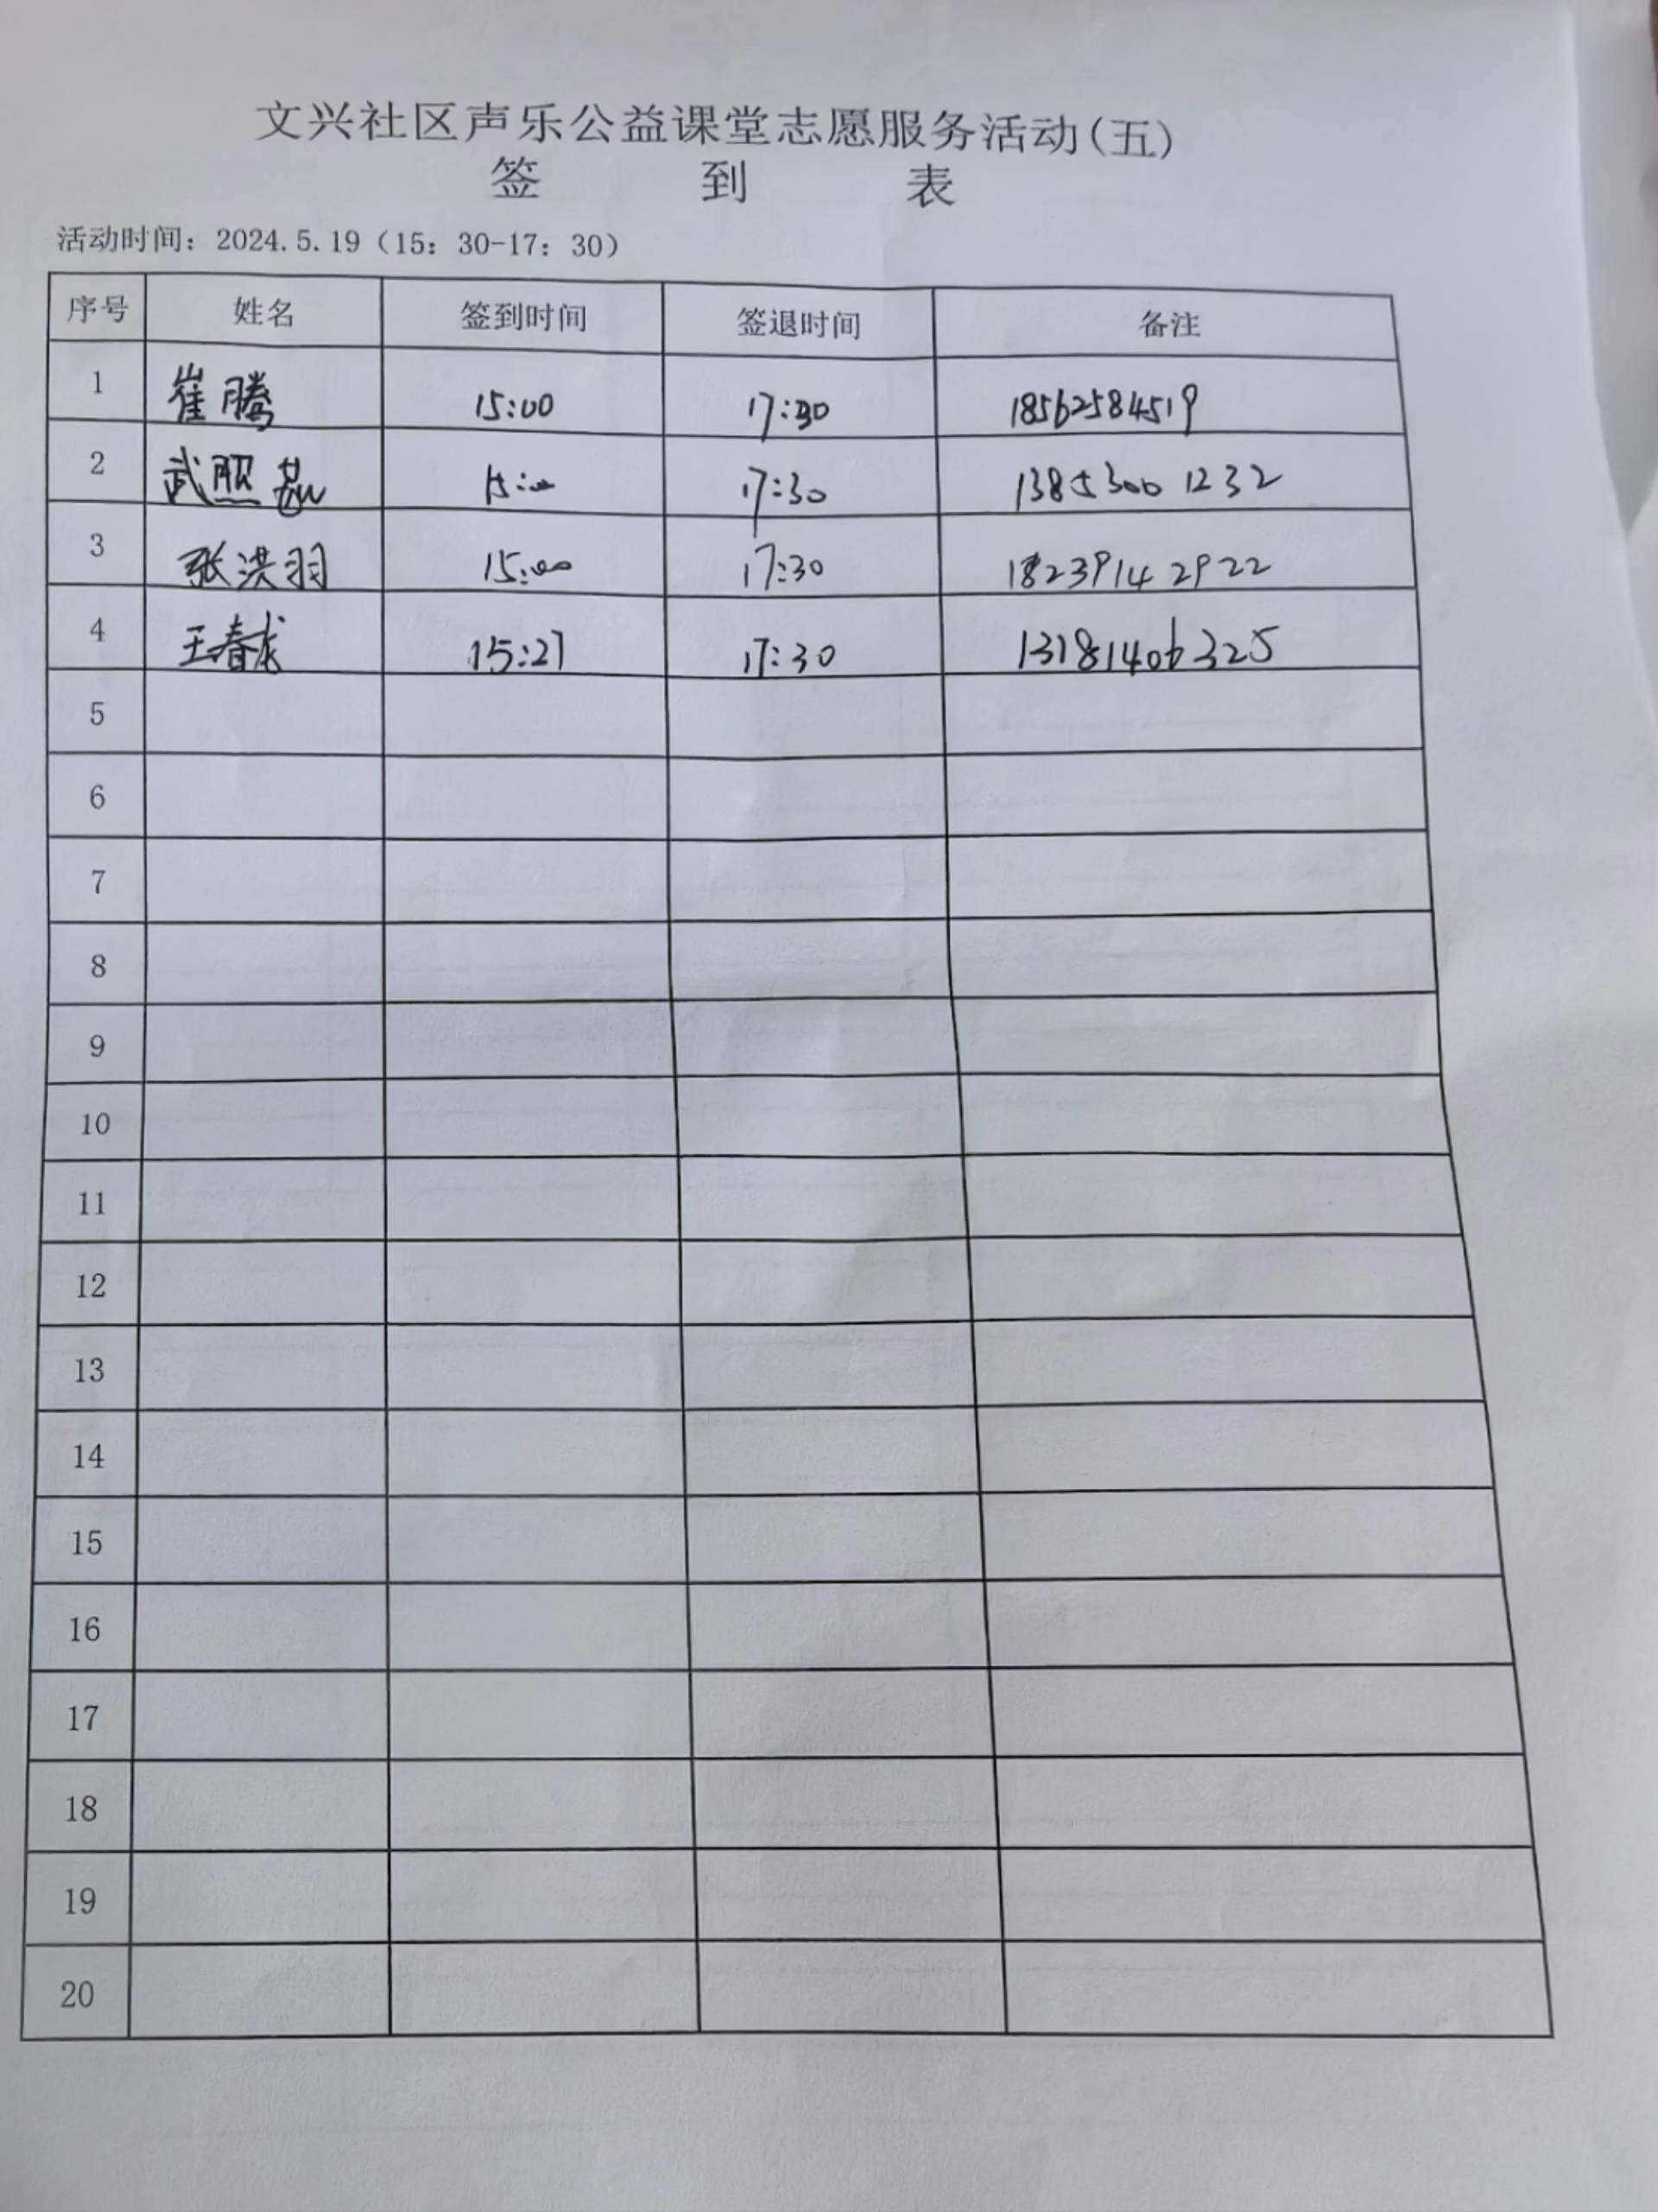 文兴社区声乐公益课堂志愿服务活动(五)
签 到 表
活动时间：2024.5.19（15：30-17：30）
序号 姓名 签到时间 签退时间 备注
1 崔腾 15:00 17:30 18562584519
2 武照 15:00 17:30 13853001232
3 张洪羽 15:00 17:30 18239142922
4 王春龙 15:27 17:30 13181406325
5
6
7
8
9
10
11
12
13
14
15
16
17
18
19
20